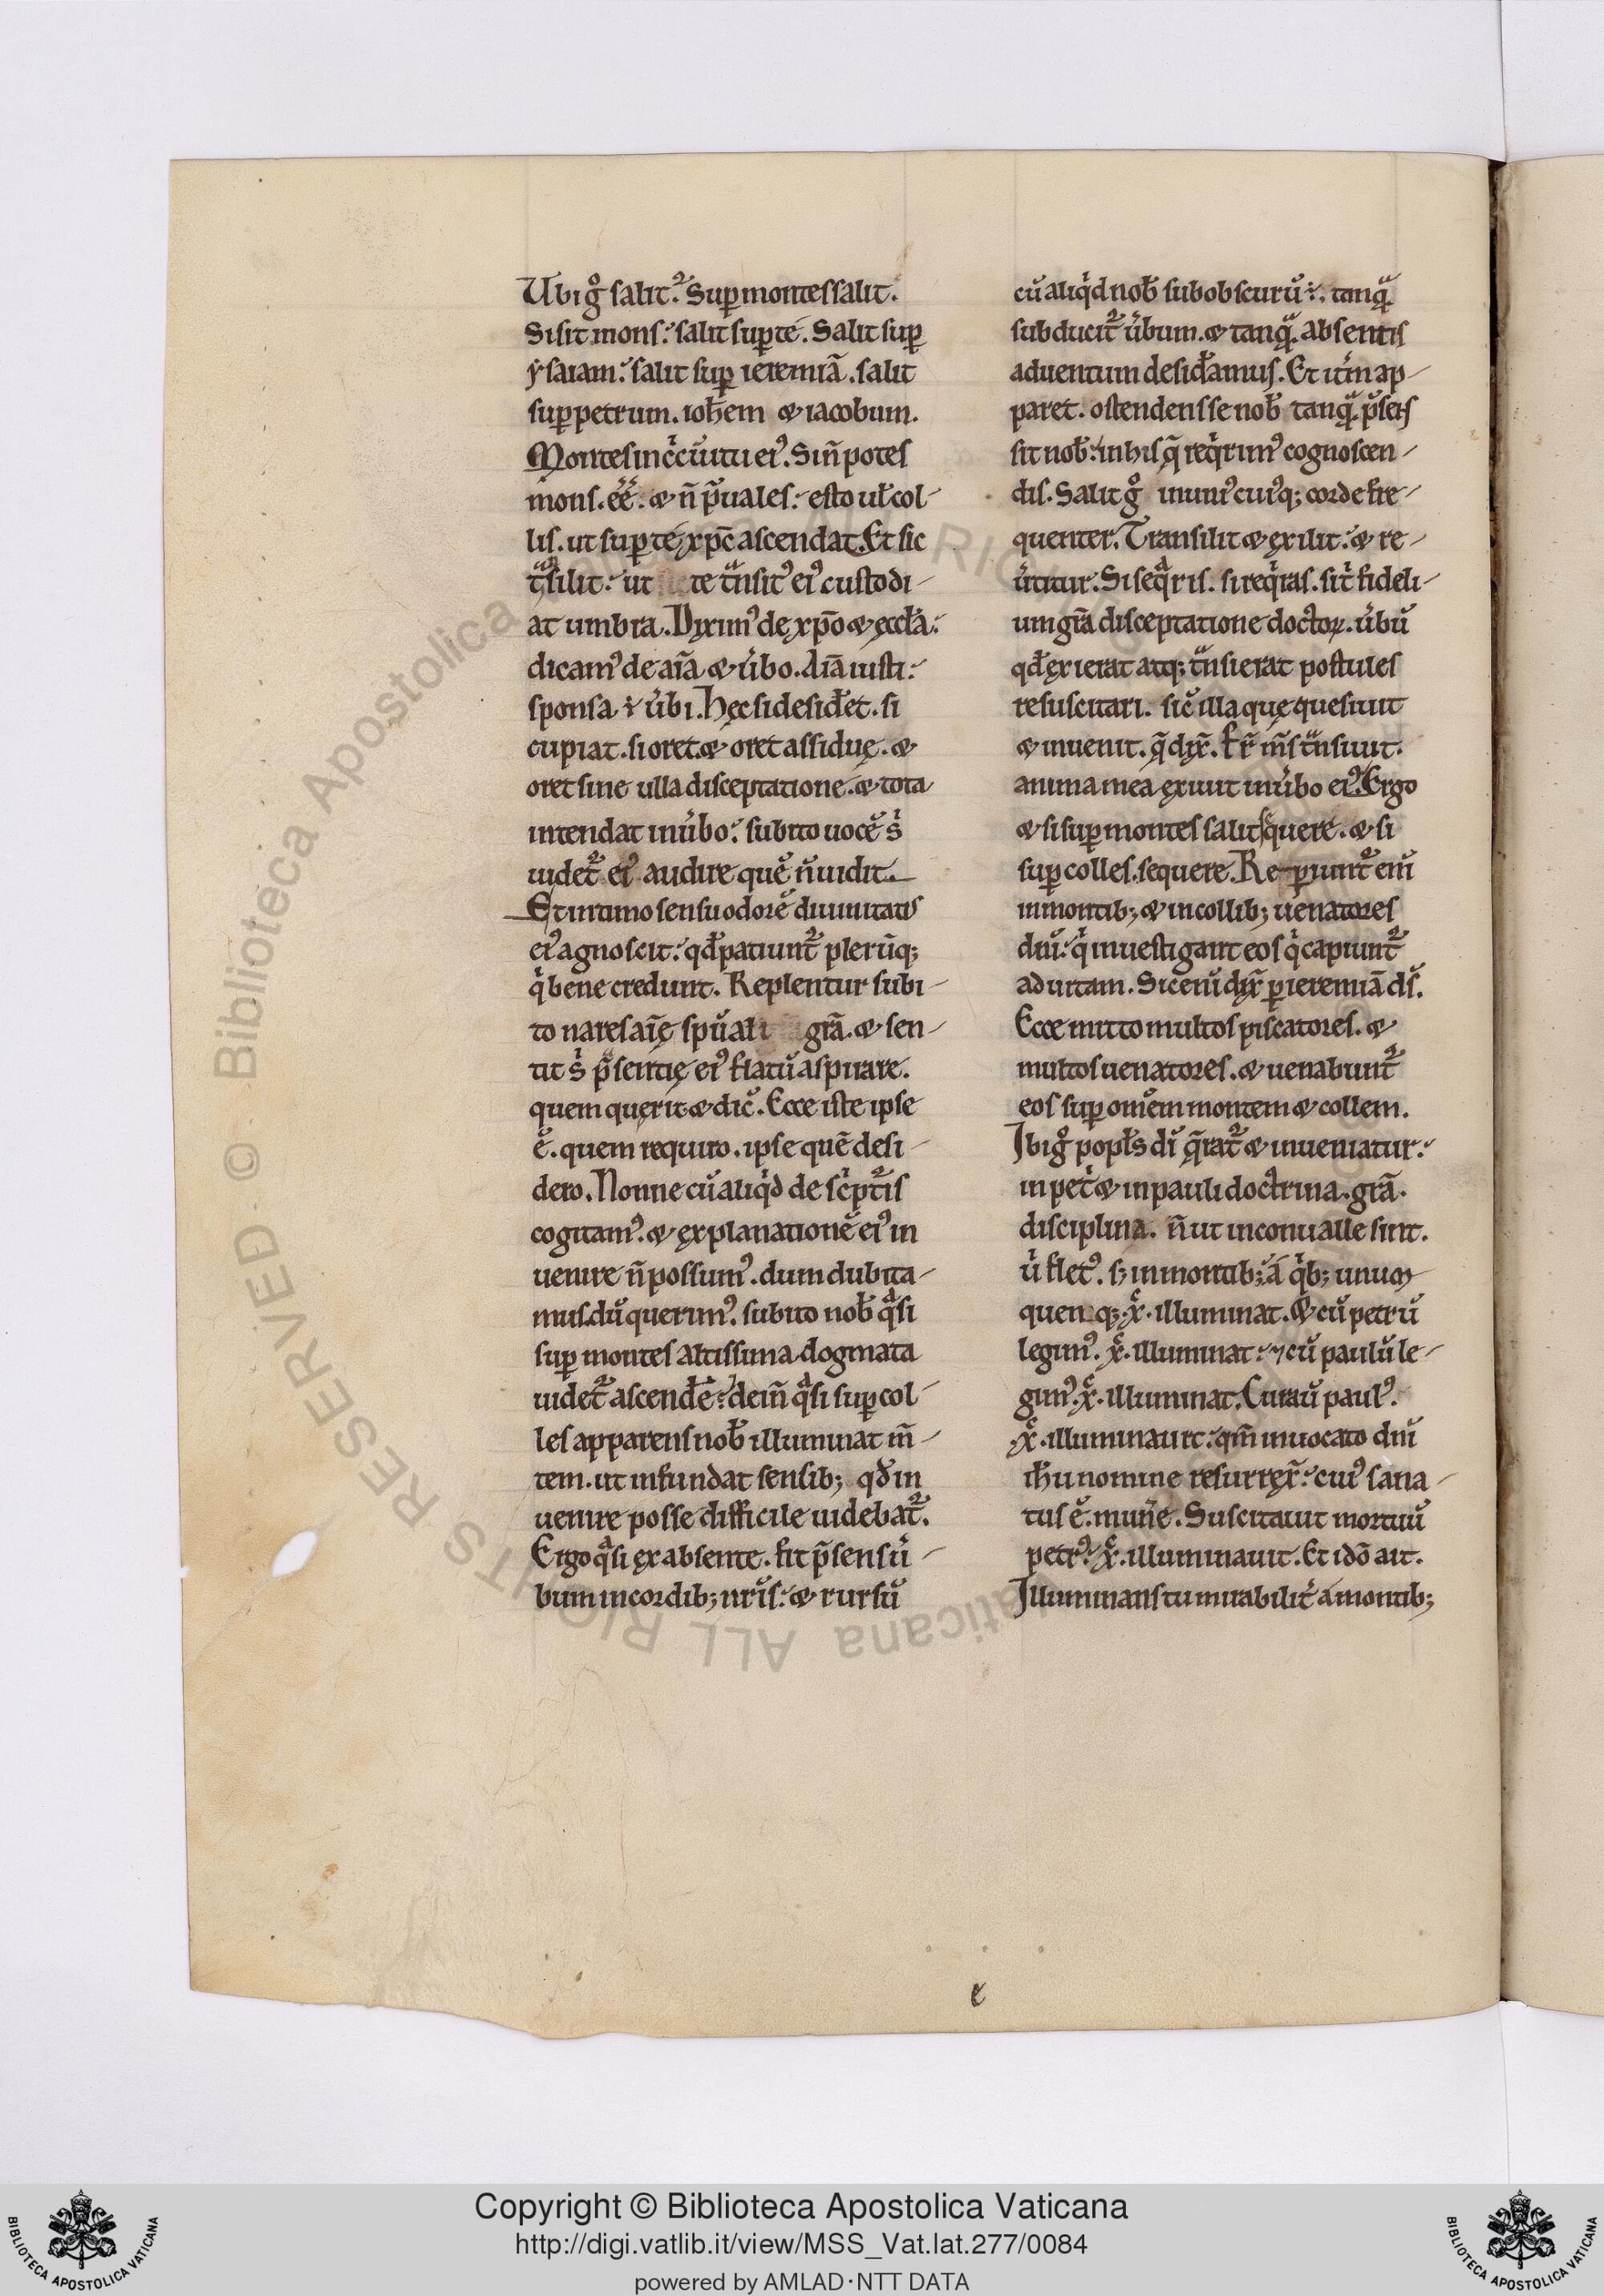 Ubi gͦ salit᷑. Suꝑ montes salit.
Si sit mons.ʼ salit suꝑ te. Salit suꝑ
ẏsaiam.ʼ salit suꝑ ieremiā. salit
suꝑ petrum. ioh̄em ⁊ iacobum.
mons. ēē. ⁊ n̄ p̄uales.ʼ esto uł col-
lis. ut suꝑ te xp̄c ascendat. Et sic
at umbra. Diximꝰ de xp̄o ⁊ ęccła.ʼ
dicamꝰ de aīa ⁊ u̾bo. Aīa iusti.ʼ
sponsa ÷ u̾bi. Hęc si desiđet. si
cupiat. si oret. ⁊ oret assiduę. ⁊
oret sine ulla disceptatione. ⁊ tota
intendat in u̾bo.ʼ subito uocē sͥ
uidet᷑ eiꝰ audire quē n̄ uidit.
Et intimo sensu odorē diuinitatis
eiꝰ agnoscit.ʼ qđ patiunt᷑ plerūq;
qͥ bene credunt. Replentur subi-
to nares aīę spūali grā. ⁊ sen-
tit sͥ p̄sentię eiꝰ flatū aspirare.
quem quęrit ⁊ dic̄. Ecce iste ipse
ē. quem requiro. ipse quē desi-
dero. Nonne cū aliqͥd de scͥpt᷑is
cogitamꝰ. ⁊ explanationē eiꝰ in
uenire n̄ possumꝰ. dum dubita-
mus. dū querimꝰ. subito nob̄ qͣsi
suꝑ montes altissima dogmata
uidet᷑ ascendē.ʼ dein̄ qͣsi suꝑ col-
les apparens nob̄ illuminat m̄-
tem. ut infundat sensib; qđ in
uenire posse difficile uidebat᷑.
Ergo qͣsi ex absente. fit p̄sens u̾-
bum in cordib; nr̄is.ʼ ⁊ rursū
cū aliqͥd nob̄ subobscurū ÷. tanqͣ.
subducit᷑ u̾bum. ⁊ tanqͣ. absentis
aduentum desiđamus. Et it̾m ap-
paret. ostendens se nob̄ tanqͣ. p̄sens
sit nob̄.ʼ in his q̄ reqͥrimꝰ cognoscen-
dis. Salit gͦ in uniꝰcuiꝰq; corde fre-
quenter. Transilit ⁊ exilit.ʼ ⁊ re-
u̾titur. Si seqͣris. si reqͥras. sit̾ fideli-
um grā disceptatione doctoꝝ. u̾bū
qđ exierat atq; tͣnsierat postules
resuscitari. sic̄ illa quę quesiuit
⁊ inuenit. q̄ dix̄. Fr̄ m̄s tͣnsiuit.
anima mea exiuit in u̾bo eiꝰ. Ergo
⁊ si suꝑ montes salit sequere. ⁊ si
suꝑ colles. sequere. Reꝑiunt᷑ enī
in montib; ⁊ in collib; uenatores
diu̾.ʼ qͥ inuestigant eos qͥ capiunt᷑
ad uitam. Sic enī dix̄ ꝑ ieremiā ds̄.
Ecce mitto multos piscatores. ⁊
multos uenatores. ⁊ uenabunt᷑
eos suꝑ omēm montem ⁊ collem.
Ibi gͦ popłs dī q̄rat᷑ ⁊ inueniatur.ʼ
in pet̾ ⁊ in pauli doctrina. grā.
disciplina. n̄ ut in conualle sint.
uͥ fletꝰ. s; in montib;.ʼ a qͥb; unum
quenq; xͨ. illuminat. ⁊ cū petrū
legimꝰ. xͨ. illuminat.ʼ ⁊ cū paulū le-
gimꝰ. xͨ. illuminat. Curau̾ paulꝰ.
xͨ. illuminauit.ʼ qm̄ inuocato dnī
ih̄u nomine resurrex̄.ʼ cuiꝰ sana-
tus ē. mun̾e. Suscitauit mortuū
petrꝰ.ʼ xͨ. illuminauit. Et idō ait.
Illuminans tu mirabilit̾ a montib;
e
© Biblioteca Apostolica Vaticana ALL RIGHTS RESERVED
Copyright © Biblioteca Apostolica Vaticana
http://digi.vatlib.it/view/MSS_Vat.lat.277/0084
powered by AMLAD·NTT DATA
BIBLIOTECA APOSTOLICA VATICANA
BIBLIOTECA APOSTOLICA VATICANA